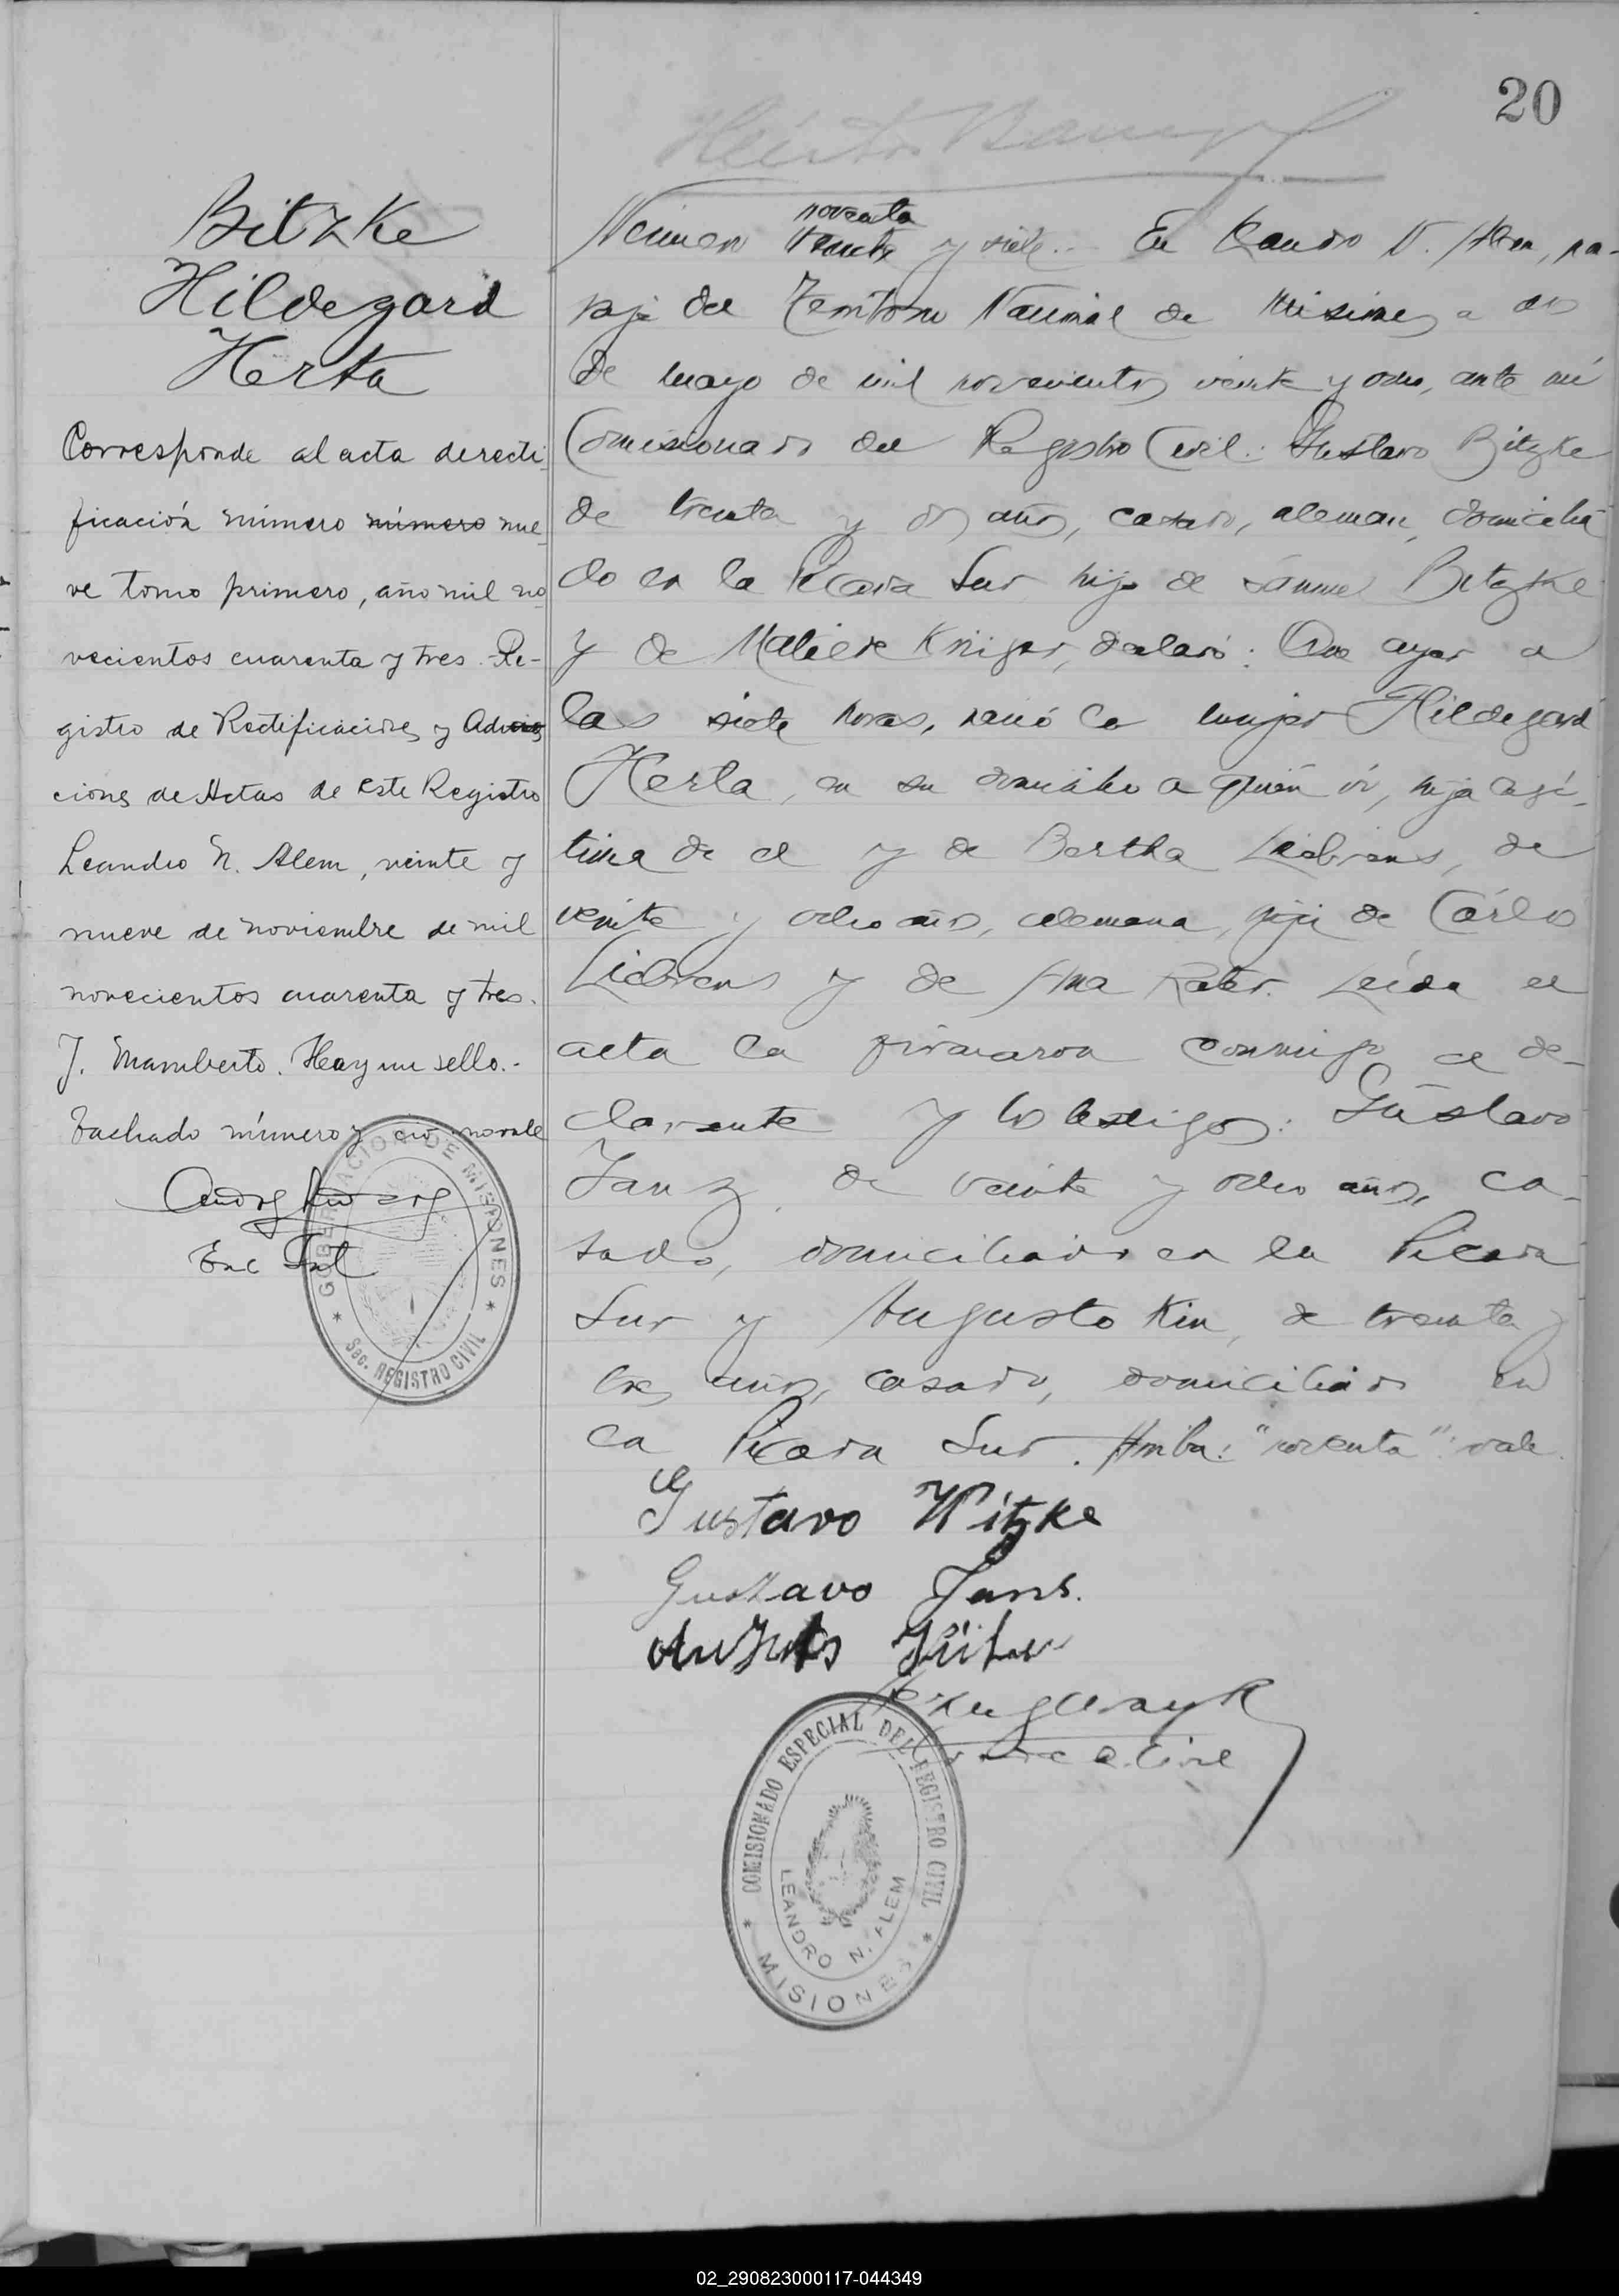 20
Bitzke
Hildegard
Herta
Corresponde al acta de recti-
ficación número número nue-
ve tomo primero, año mil no-
vecientos cuarenta y tres. Re-
gistro de Rectificaciones y Adi
ciones de Actas de este Registro
Leandro N. Alem, veinte y
nueve de noviembre de mil
novecientos cuarenta y tres.
J. Mamberto. Hay un sello.-
Tachado número y cio no vale
Enc
GOBERNACION DE MISIONES
Sec. REGISTRO CIVIL
noventa
Número y siete.- En Leandro N. Alem, pa-
raje del Territorio Nacional de Misiones a dos
de mayo de mil novecientos veinte y ocho, ante mi
Comisionado del Registro Civil: Gustavo Bitzke
de treinta y dos años, casado, aleman, domicilia
do en la Picada Sur hijo de Sámuel Bitzke
y de Matilde Kriger, declaró: Que ayer a
las siete horas, nació la mujer Hildegard
Herta, en su domicilio a quién ví, hija legí-
tima de el y de Bertha Liebrens, de
veinte y ocho años, alemana, hija de Cárlos
Liebrens y de Ana Rater. Leída el
acta la firmaron conmigo el de-
clarente y los testigos: Gústavo
Janz, de veinte y ocho años, ca-
sado, domiciliado en la Picada
Sur y Augusto Kin, de treinta y
tres años, casado, domiciliado en
la Picada Sur. Arriba: "noventa": vale.
Gustavo Witzke
Gustavo Jans.
COMISIONADO ESPECIAL DEL REGISTRO CIVIL
LEANDRO N. ALEM
MISIONES
02_290823000117-044349